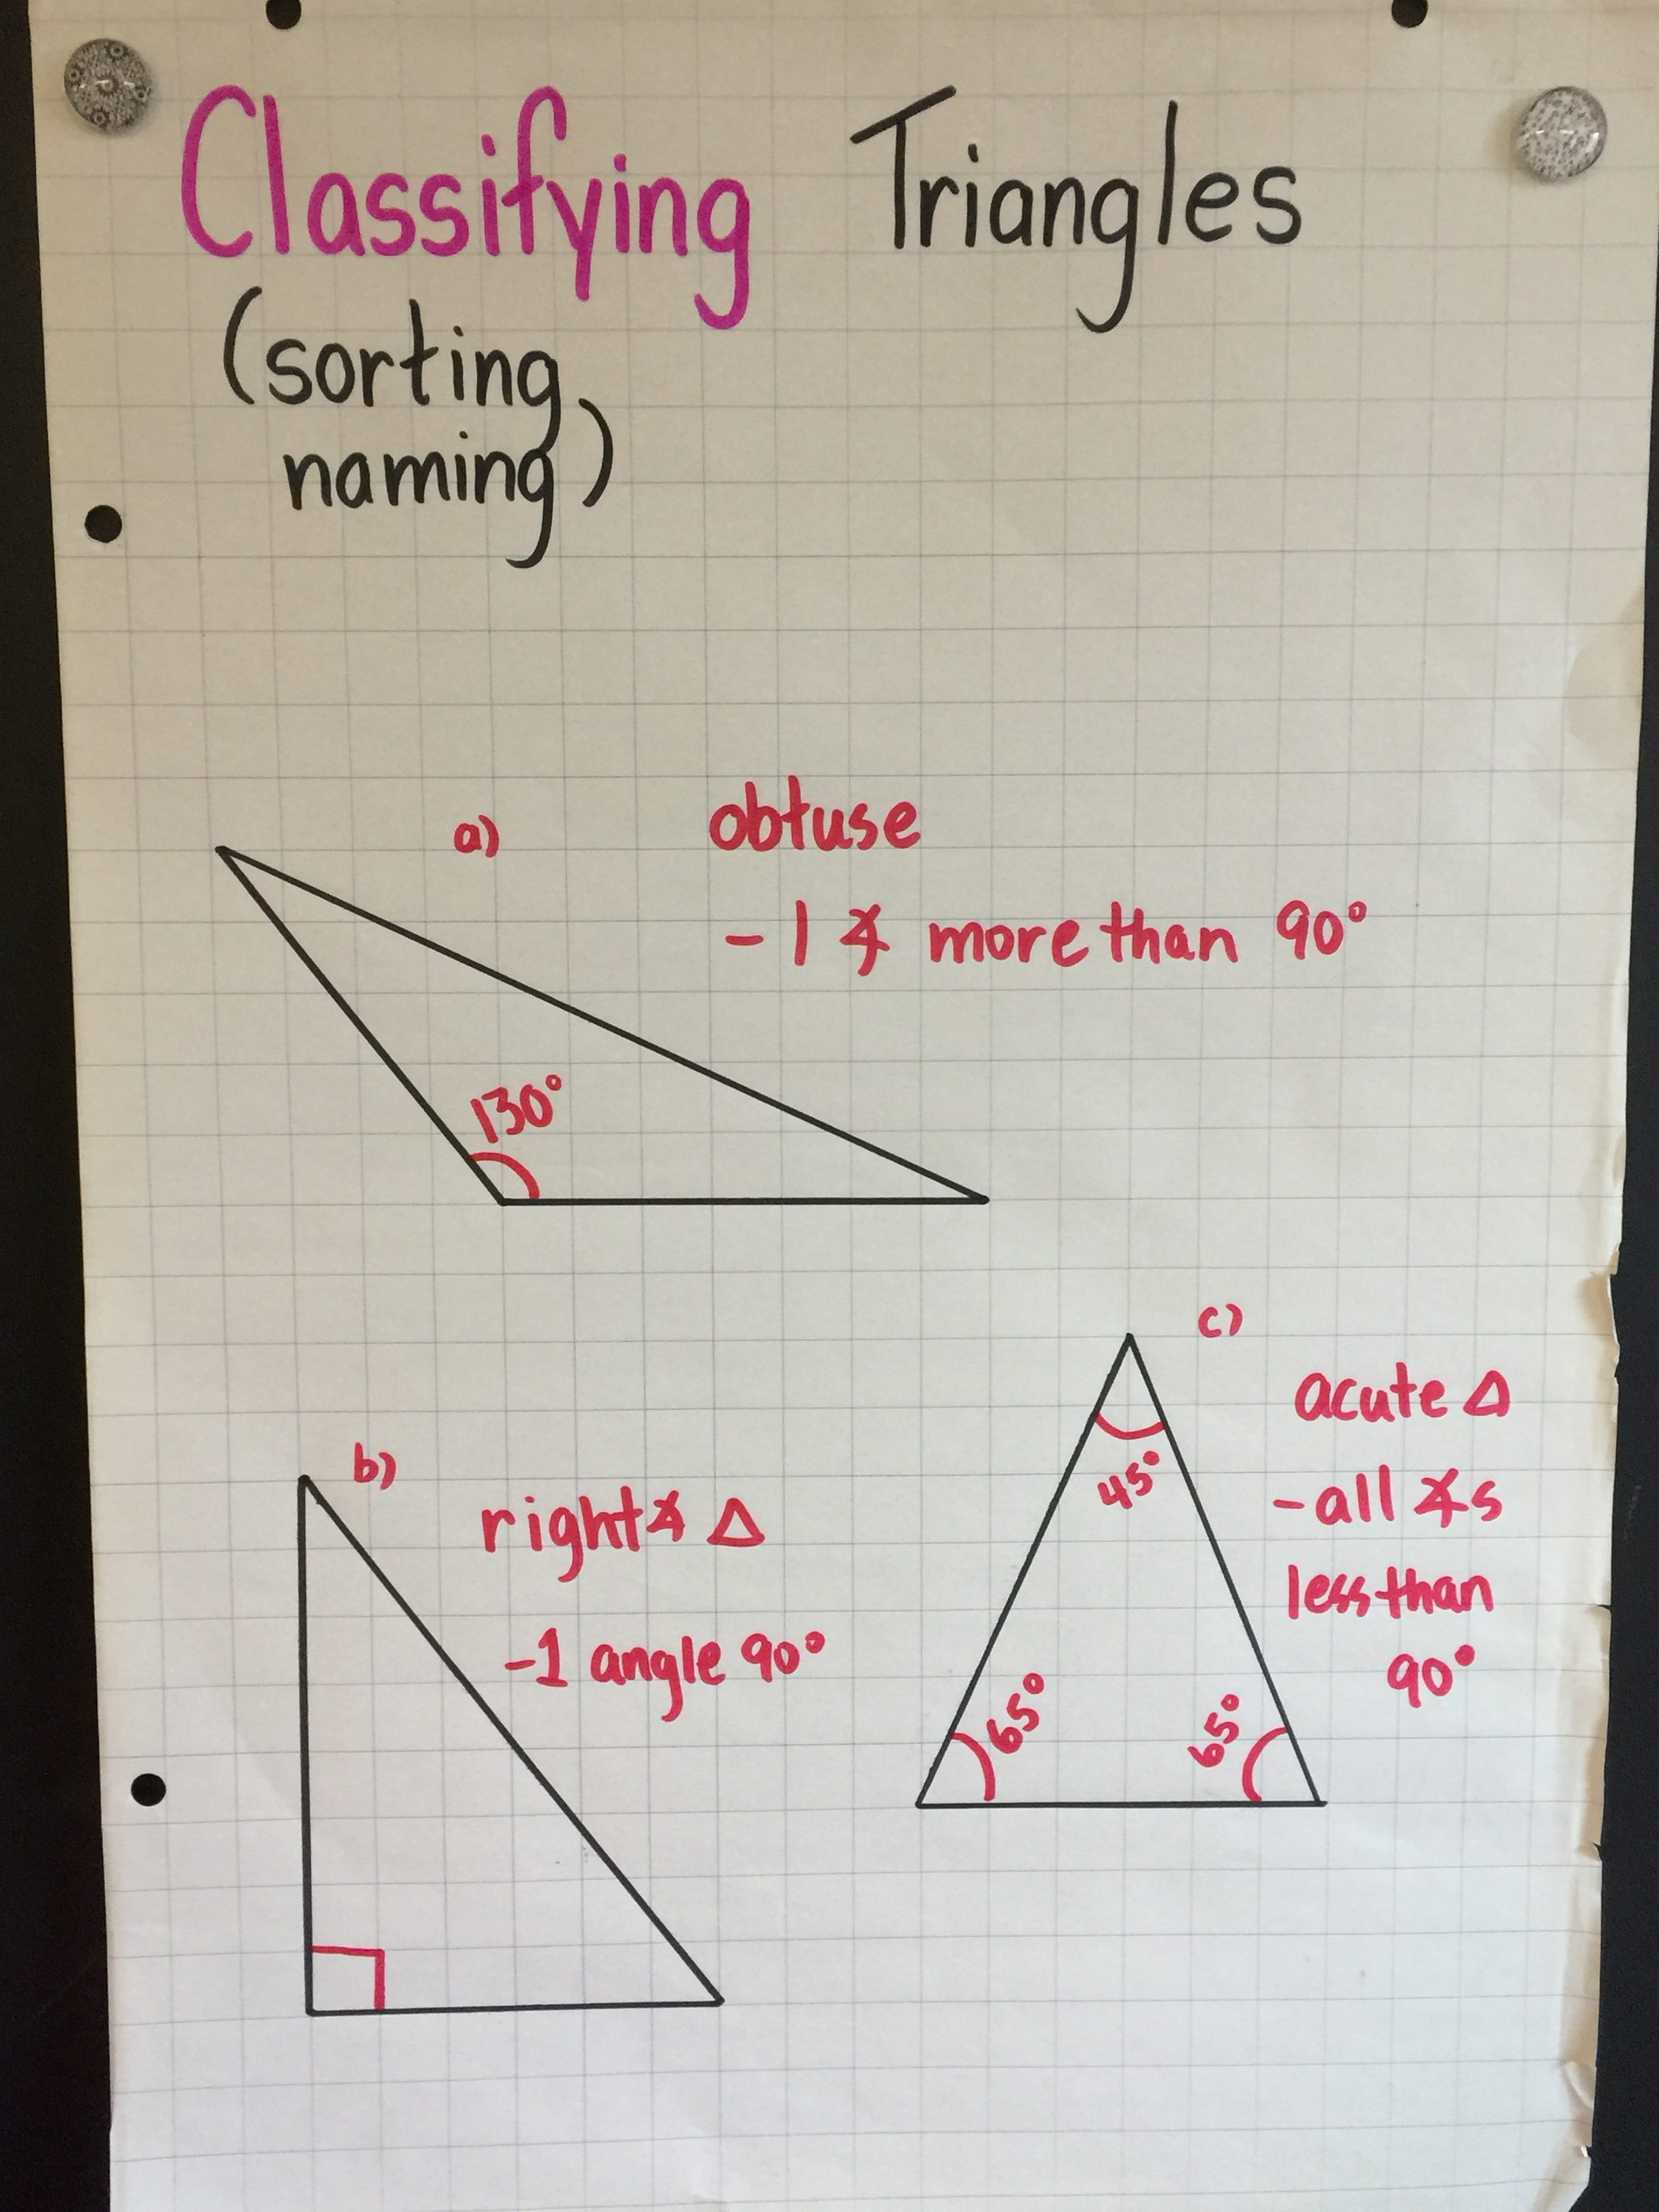 Classifying Triangles
(sorting,
naming)
a) obtuse
-1 ∡ more than 90°
130°
c)
acute △
-all ∡s
less than
90°
45°
65° 65°
b)
right∡ △
-1 angle 90°